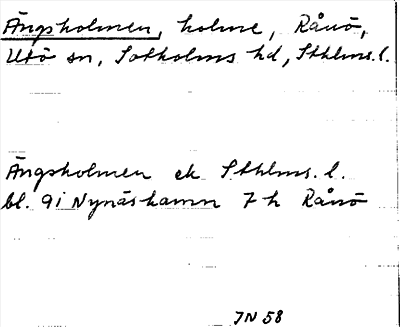 Ängsholmen, holme, Rånö,
Utö sn, Sotholms hd, Sthlms. l.
Ängsholmen ek Sthlms. l.
bl. 9i Nynäshamn 7h Rånö
JN 58